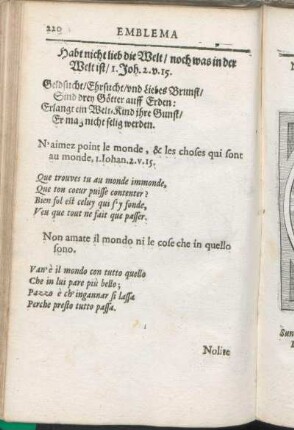 220 EMBLEMA
Habt nicht lieb die Welt / noch was in der
Welt ist / 1. Joh. 2. v. 15.
Geldsucht / Ehrsucht / vnd liebes Brunst /
Sind drey Götter auff Erden:
Erlangt ein Welt-Kind ihre Gunst /
Er mag nicht selig werden.
N'aimez point le monde, & les choses qui sont
au monde, 1. Iohan. 2. v. 15.
Que trouves tu au monde immonde,
Que ton cœur puisse contenter?
Bien sol est celuy qui s'y fonde,
Veu que tout ne fait que passer.
Non amate il mondo ni le cose che in quello
sono.
Van' è il mondo con tutto quello
Che in lui pare più bello;
Pazzo è ch' ingannar si lassa
Perche presto tutto passa.
Nolite
Sun